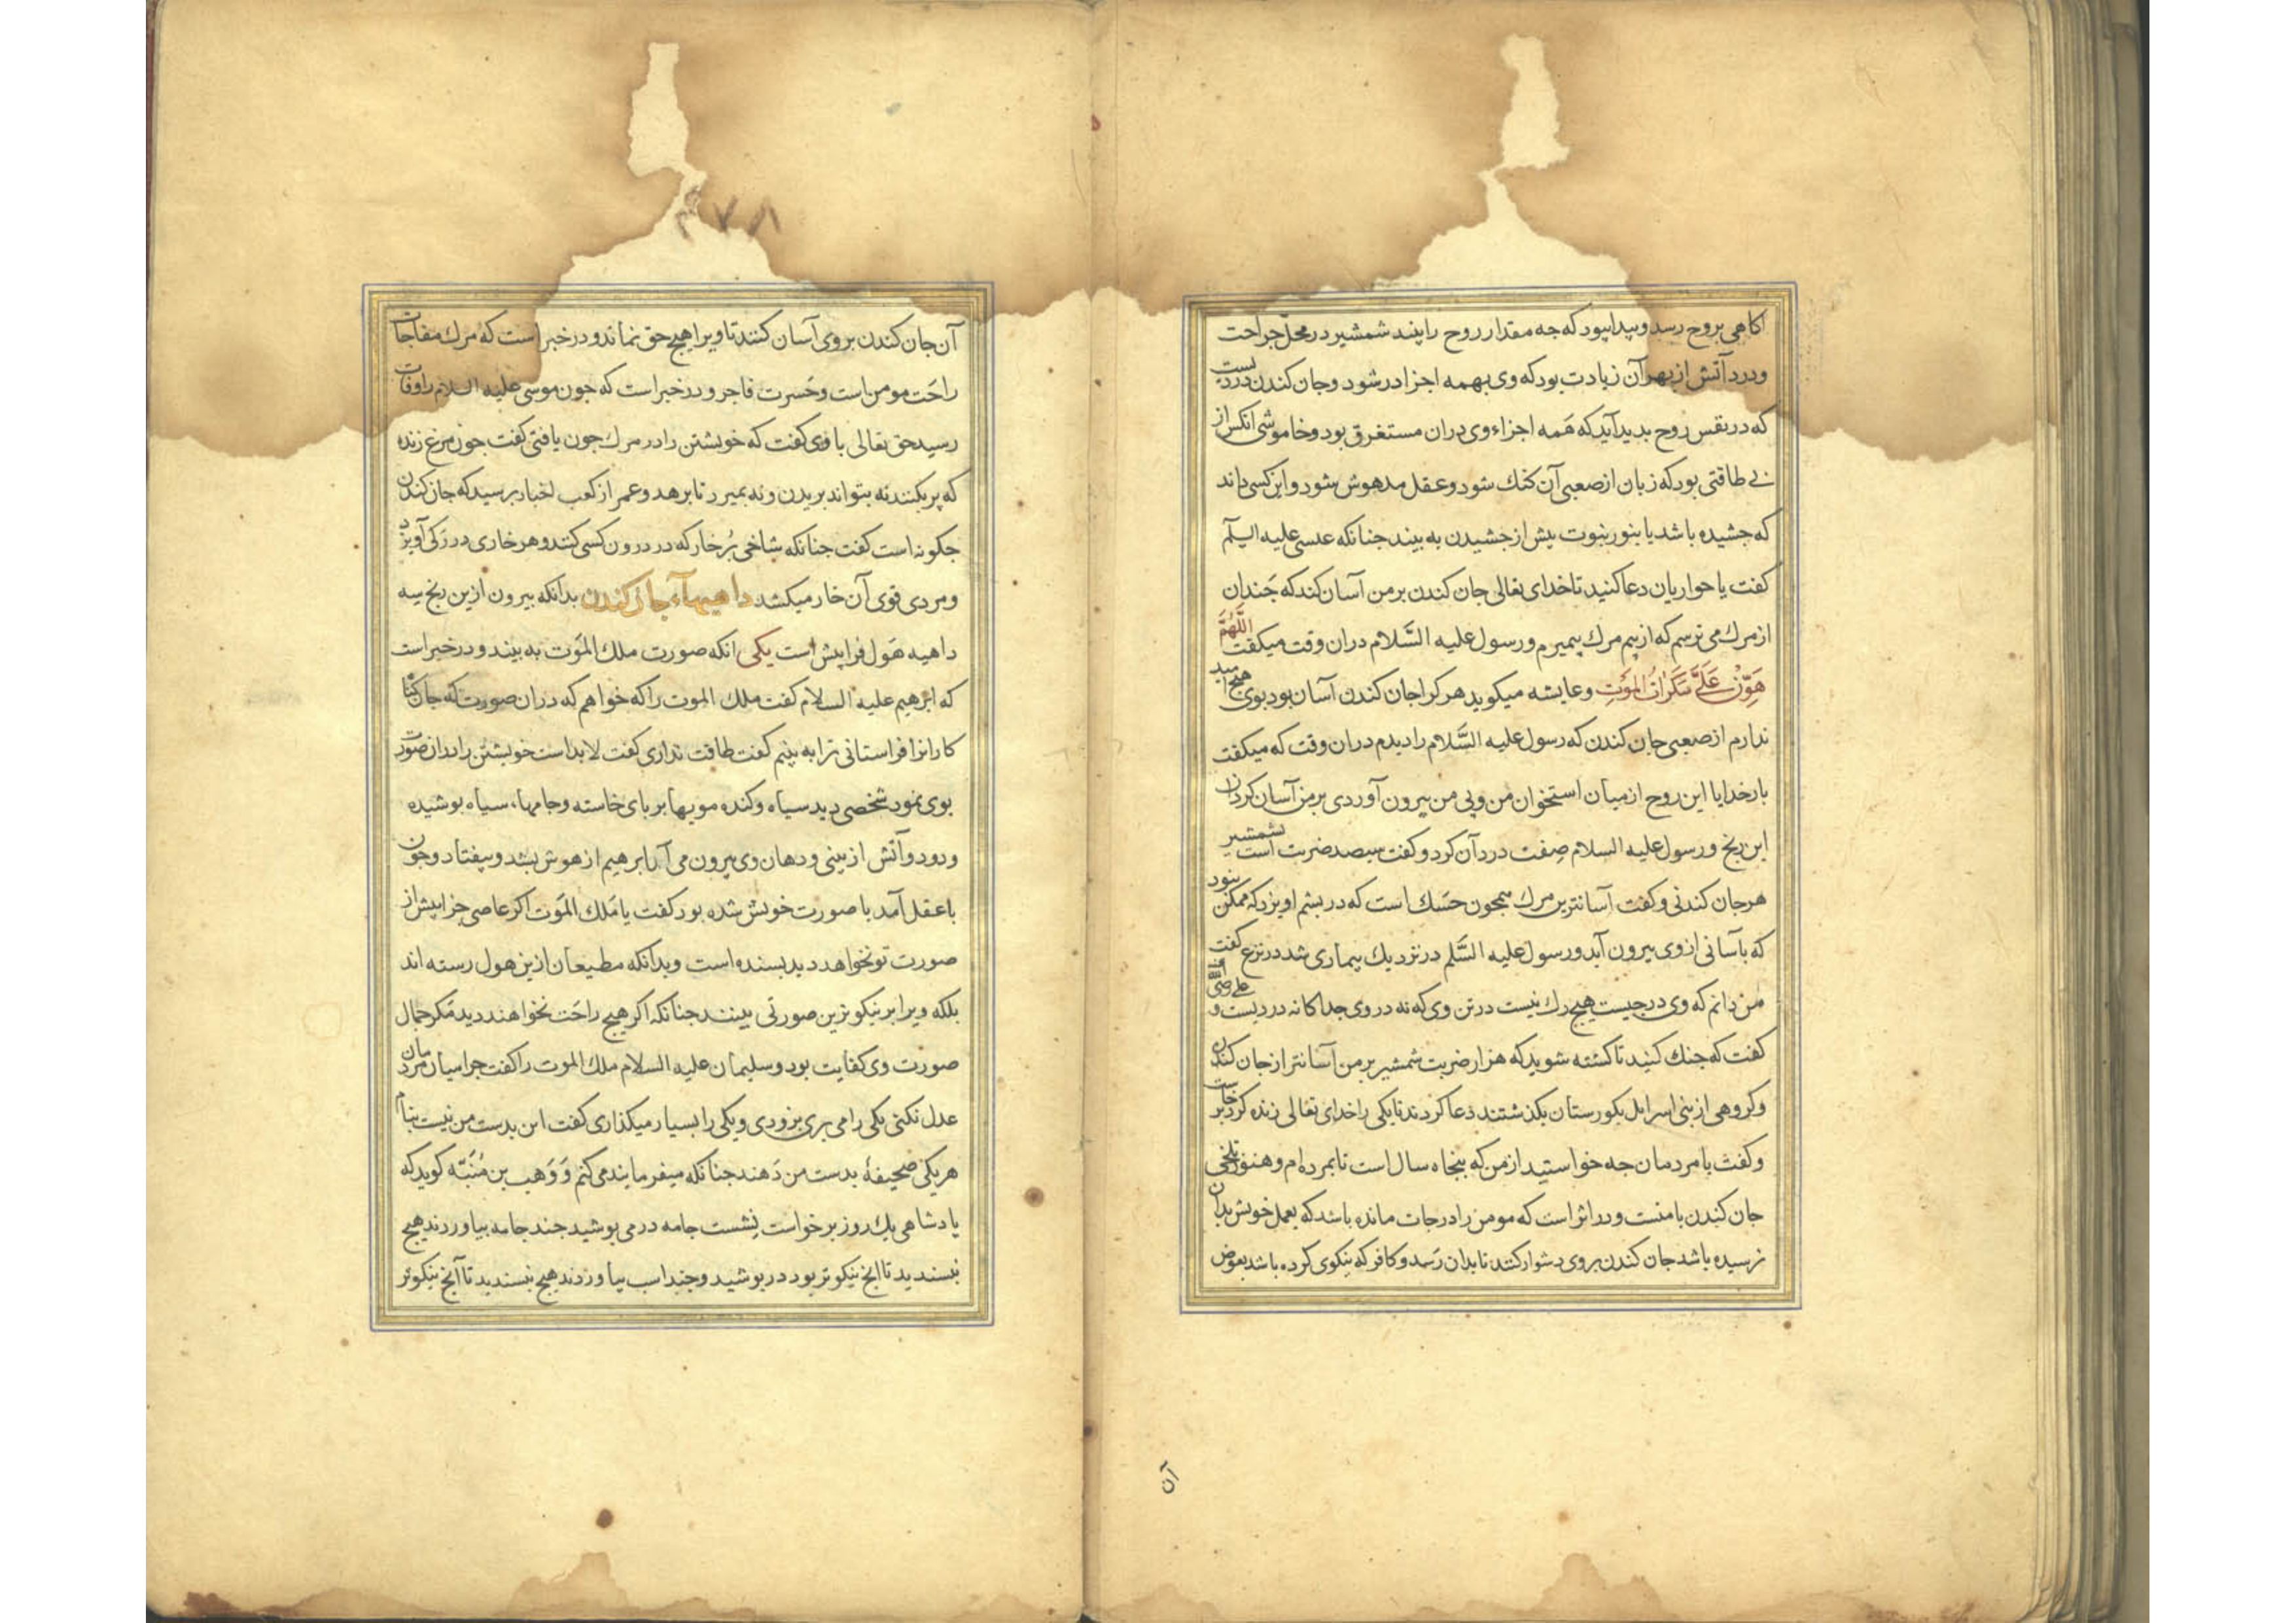 آکاهی بروح رسد و پیدا پبود که جه مقدار روح را پند شمشیر در محلّ جراحت
و درد آتش از بهر آن زیادت بود که وی بهمه اجزا در شود و جان کندن دردیست
که در نفس روح بدید آید که هَمه اجزاء وی دران مستغرق بود و خاموشی آنکس از
بی طاقتی بود که زبان از صعبی آن کنك شود و عقل مدهوش شود و این کسی داند
که جشیده باشد یا بنور نبوت پیش از جشیدن به بیند جنانکه عیسی علیه السلم
کفت یا حواریان دعا کنید تا خدای تعالی جان کندن بر من آسان کند که جَندان
از مرك می ترسم که از بیم مرك بمیرم و رسول علیه السَّلام دران وقت میکفت اللَّهُمَّ
هَوِّنْ عَلَیَّ سَکَرَاتُ المَوتِ و عایشه میکوید هر کرا جان کندن آسان بود بوی هیج امید
ندارم از صعبی جان کندن که رسول علیه السَّلام را دیدم دران وقت که میکفت
بار خدایا این روح از میان استخوان من و پی من بیرون آوردی بر من آسان کردان
این رنج و رسول علیه السلام صِفت درد آن کرد و کفت سیصد ضربت است بشمشیر
هر جان کندنی و کفت آسانترین مرك همجون حَسَك است که در پشم آویزد که ممکن نبود
که بآسانی از وی بیرون آید و رسول علیه السَّلم در نزدیك بیماری شد در نزع کفت
من دانم که وی در جیست هیج رك نیست در تن وی که نه در وی جداکانه دردیست و علی رضی الله عنه
کفت که جنك کنید تا کشته شوید که هزار ضربت شمشیر بر من آسانتر از جان کندن
و کروهی از بنی اسرایل بکورستان بکذشتند دعا کردند تا یکی را خدای تعالی زنده کرد بر خاست
و کفت یا مردمان جه خواستید از من که پنجاه سال است تا بمرده ام و هنوز تلخی
جان کندن با منست و در اثر است که مومن را درجات مانده باشد که بعمل خویش بدان
نرسیده باشد جان کندن بروی دشوار کنند تا بدان رَسد و کافر که نیکوی کرده باشد بعوض
آن
۴۷۸
آن جان کندن بر وی آسان کنند تا ویرا هیج حق نماند و در خبر است که مرك مفاجات
راحَت مومن است و حَسرت فاجر و در خبر است که جون موسی علیه السلام را وفات
رسید حق تعالی با وی کفت که خویشتن را در مرك جون یافتی کفت جون مرغ زنده
که پر بکنند نه بتواند بریدن و نه بمیرد تا برهد و عمر از کعب اخبار برسید که جان کندن
جکونه است کفت جنانکه شاخی بُر خار که در درون کسی کنند و هر خاری در رَکی آویزد
و مردی قوی آن خار میکشد داهیهاء جان کندن بدانکه بیرون ازین رنج سه
داهیه هَول فرا پیش است یکی انکه صورت ملك المَوت به بیند و در خبر است
که ابرهیم علیه السلام کفت ملك الموت را که خواهم که دران صورت که جان کنا
کارانرا فراستانی ترا به بینم کفت طاقت نداری کفت لابد است خویشتن را دران صورت
بوی نمود شخصی دید سیاه و کنده مویها بر بای خاسته و جامهاء سیاه بوشیده
و دود و آتش از بینی و دهان وی بیرون می آمد ابرهیم از هوش بشد و بیفتاد و جون
با عقل آمد با صورت خویش شده بود کفت یا مَلك المَوت اکر عاصی جز این پیش از
صورت تو نخواهد دید بسنده است و بدانکه مطیعان ازین هول رسته اند
بلکه ویرا بر نیکوترین صورتی بینند جنانکه اکر هیج راحَت نخواهند دید مَکر جمال
صورت وی کفایت بود و سلیمان علیه السلام ملك الموت را کفت جرا میان مردمان
عدل نکنی یکی را می بری بزودی و یکی را بسیار میکذاری کفت این بدست من نیست بنام
هر یکی صحیفهٔ بدست من دَهند جنانکه میفرمایند می کنم وَ وَهب بن مُنَبّه کوید که
پادشاهی یك روز بر خواست نشست جامه در می بوشید جند جامه بیاوردند هیج
نپسندید تا آنج نیکوتر بود در بوشید و جند اسب بیاوردند هیج نپسندید تا آنج نیکوتر